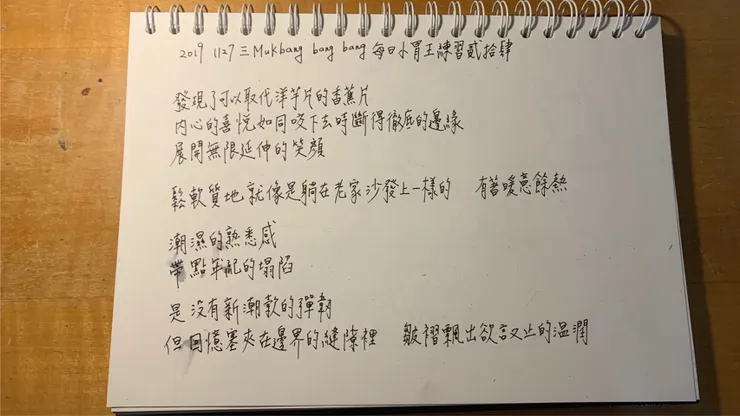 2019 1127 三 Mukbang bang bang 每日小胃王練習貳拾肆
發現了可以取代洋芋片的香蕉片
內心的喜悅如同咬下去時斷得徹底的邊緣
展開無限延伸的笑顏
鬆軟質地就像是躺在老家沙發上一樣的 有著暖意餘熱
潮濕的熟悉感
帶點年紀的塌陷
是沒有新潮款的彈韌
但回憶塞夾在邊界的縫隙裡 皺褶飄出欲言又止的溫潤